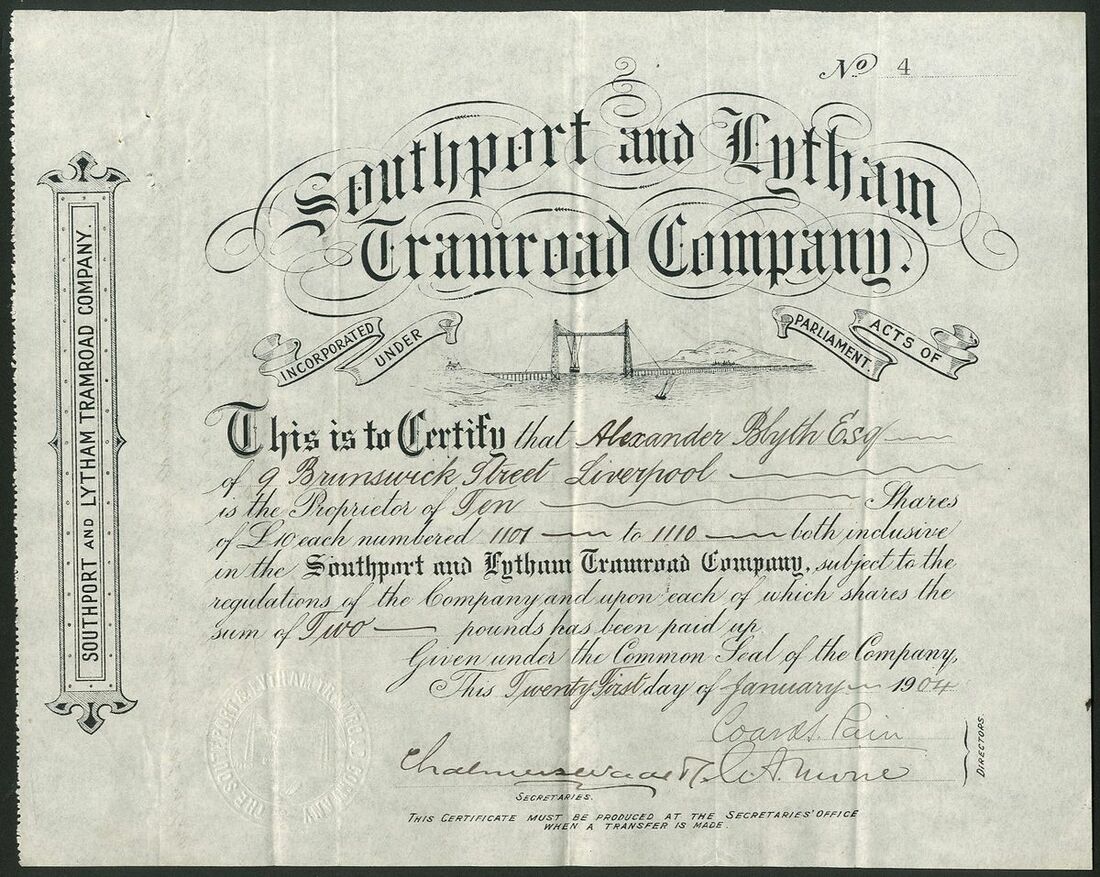 No 4
Southport and Lytham
Tramroad Company.
INCORPORATED
UNDER
ACTS OF
PARLIAMENT.
SOUTHPORT AND LYTHAM TRAMROAD COMPANY.
This is to Certify that Alexander Blyth Esq
of 9 Brunswick Street Liverpool
is the Proprietor of Ten Shares
of £10 each numbered 1101 to 1110 both inclusive
in the Southport and Lytham Tramroad Company, subject to the
regulations of the Company and upon each of which shares the
sum of Two pounds has been paid up
Given under the Common Seal of the Company,
This Twenty First day of January 1904
DIRECTORS.
SECRETARIES.
THIS CERTIFICATE MUST BE PRODUCED AT THE SECRETARIES' OFFICE
WHEN A TRANSFER IS MADE.